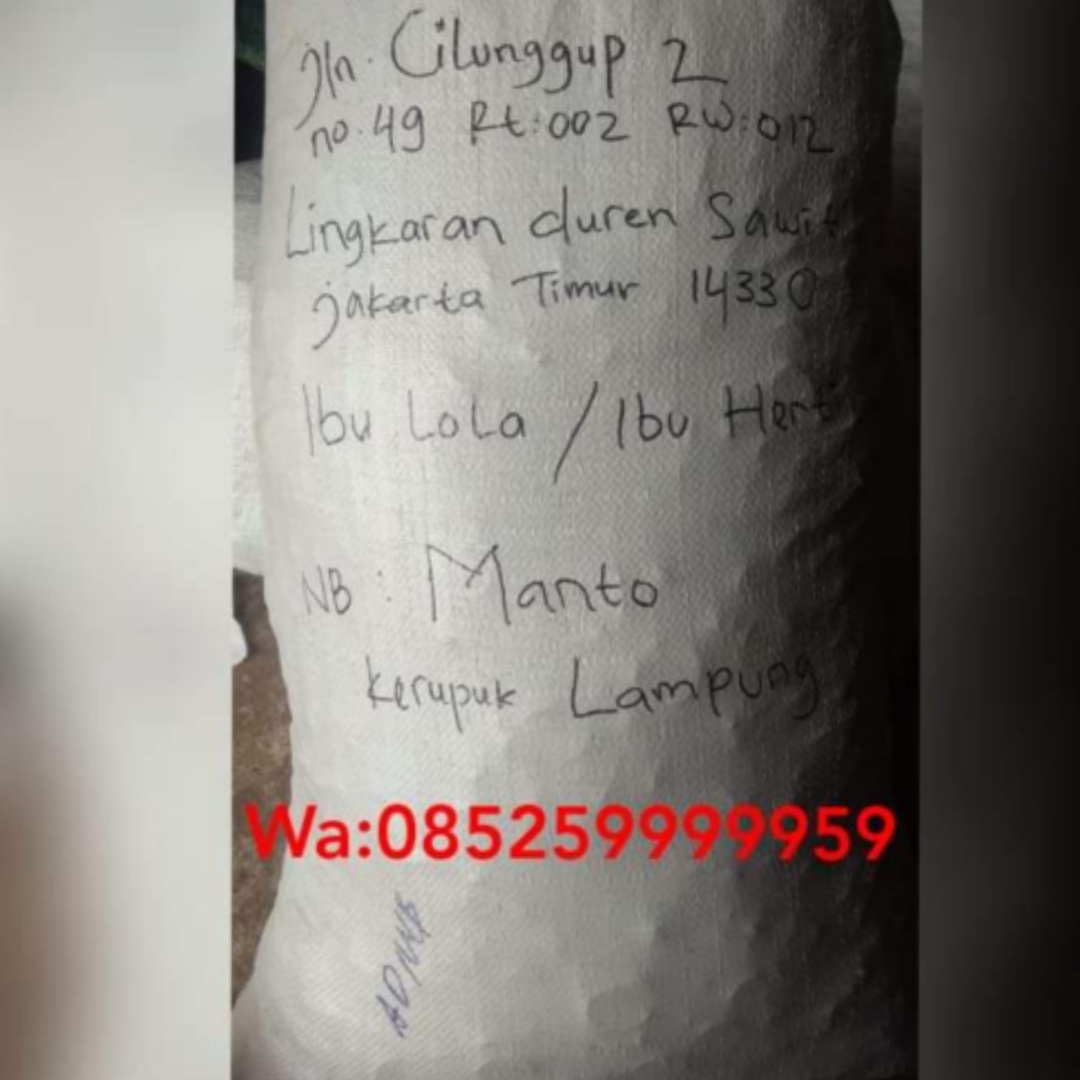 Jln. Cilunggup 2
no. 49 Rt:002 RW:012
Lingkaran duren Sawit
jakarta Timur 14330
Ibu LoLa / Ibu Herti
NB : Manto
kerupuk Lampung
Wa:085259999959